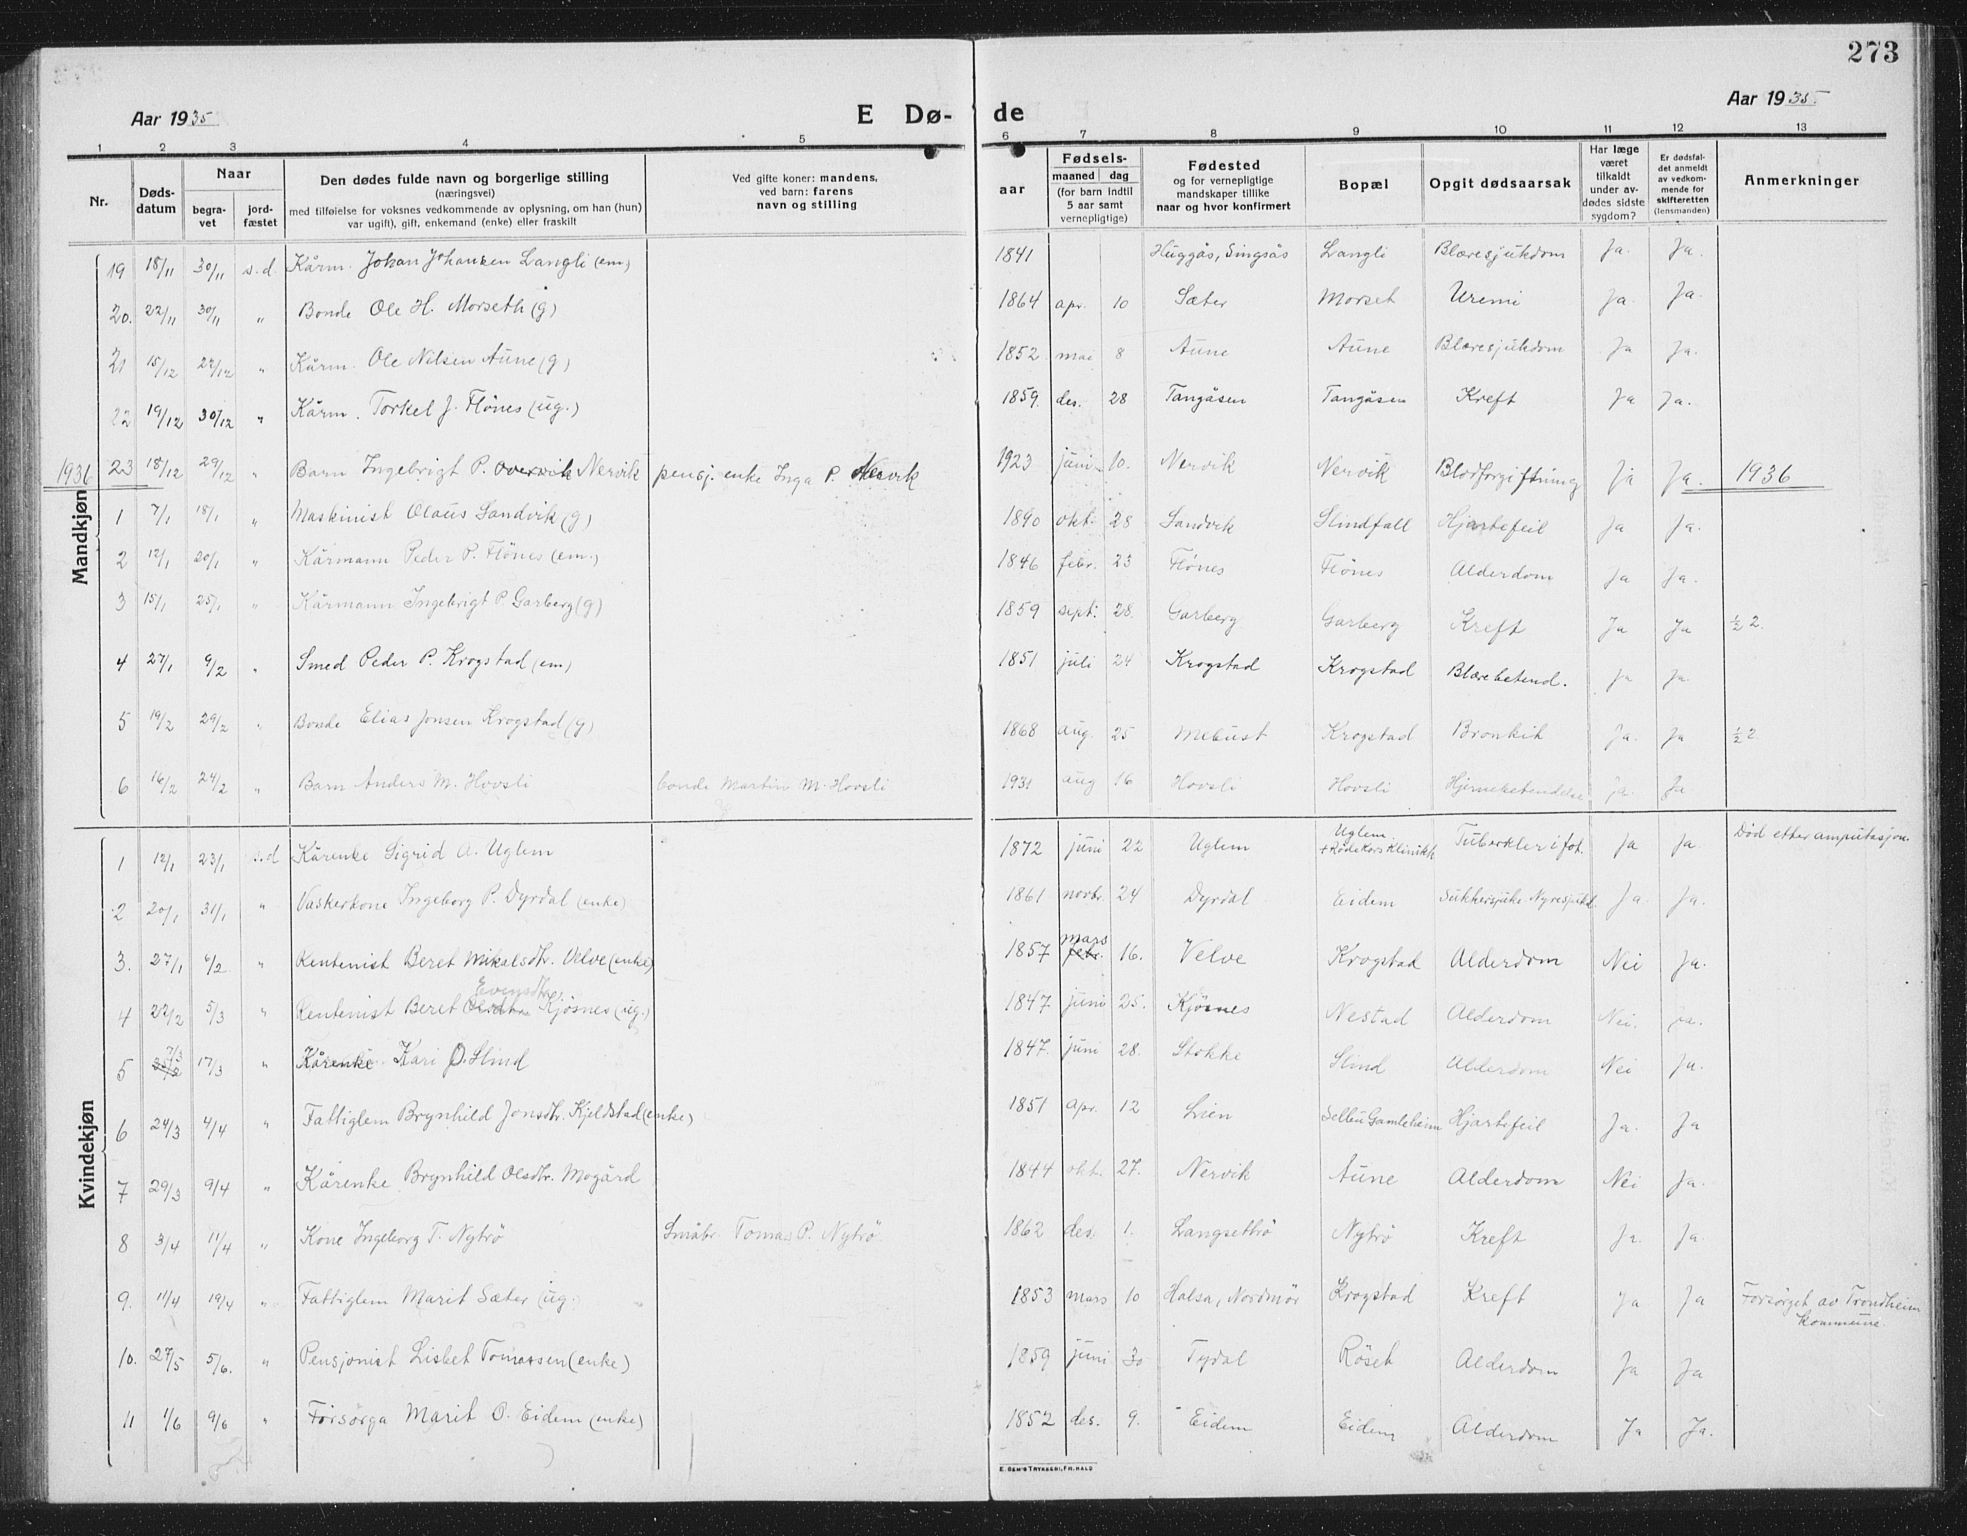 273
Aar 1935
E Dø-
de
Aar 1935
1 2 3 4 5 6 7 8 9 10 11 12 13
Nr.
Døds-
datum
Naar
begra-
vet
jord-
fæstet
Den dødes fulde navn og borgerlige stilling
(næringsvei)
med tilføielse for voksnes vedkommende av oplysning, om han (hun)
var ugift), gift, enkemand (enke) eller fraskilt
Ved gifte koner: mandens,
ved barn: farens
navn og stilling
aar
Fødsels-
maaned dag
(for barn indtil
5 aar samt
vernepligtige)
Fødested
og for vernepligtige
mandskaper tillike
naar og hvor konfirmert
Bopæl
Opgit dødsaarsak
Har læge
været
tilkaldt
under av-
dødes sidste
sygdom?
Er dødsfal-
det anmeldt
av vedkom-
mende for
skifteretten
(lensmanden)
Anmerkninger
Mandkjøn
19 18/11 30/11 s.d. Kårm. Johan Johansen Langli (em) 1841 Huggås, Singsås Langli Blæresjukdom Ja. Ja.
20. 22/11 30/11 " Bonde Ole H. Morseth (g) 1864 apr. 10 Sæter Morset Uremi Ja. Ja.
21 15/12 22/12 " Kårm. Ole Nilsen Aune (g) 1852 mai 8 Aune Aune Blæresjukdom Ja Ja.
22 19/12 30/12 " Kårm. Torkel J. Flönes (ug.) 1859. des. 28 Tangåsen Tangåsen Kreft Ja Ja.
1936 23 18/12 29/12 " Barn Ingebrigt P. Overvik Nervik pensj. enke Inga P. Nervik 1923 juni 10. Nervik Nervik Blodforgiftning Ja Ja. 1936
1 7/1 18/1 " Maskinist Olaus Sandvik (g) 1890 okt. 28 Sandvik Slindfall Hjartefeil Ja Ja.
2 12/1 20/1 " Kårmann Peder P. Flönes (em.) 1846 febr. 23 Flönes Flönes Alderdom Ja Ja.
3 15/1 25/1 " Kårmann Ingebrigt P. Garberg (g) 1859 sept. 28. Garberg Garberg Kreft Ja Ja ½ 2.
4 27/1 9/2 " Smed Peder P. Krogstad (em) 1851 juli 24 Krogstad Krogstad Blærebetend. Ja Ja.
5 19/2 29/2 " Bonde Elias Jonsen Krogstad (g) 1868 aug. 25 Mebust Krogstad Bronkit Ja. Ja ½ 2
6 16/2 24/2 " Barn Anders M. Hovsli bonde Martin M. Hovsli 1931 aug 16 Hovsli Hovsli Hjernebetendelse Ja. Ja
Kvindekjøn
1 12/1 23/1 s.d Kårenke Sigrid A. Uglem 1872 juni 22 Uglem Uglem + Röde Kors klinikk Tuberkler i fot. Ja Ja. Død etter amputasjon.
2 20/1 31/1 " Vaskerkone Ingeborg P. Dyrdal (enke) 1861 novbr. 24 Dyrdal Eidem Sukkersjuke Nyresjukd. Ja. Ja.
3. 27/1 6/2 " Rentenist Beret Mikalsdtr. Velve (enke) 1857 mars febr. 16. Velve Krogstad Alderdom Nei Ja.
4 22/2 5/3 " Rentenist Beret Olsdtr. Evensdtr. Kjösnes (ug.) 1847 juni 25. Kjösnes Nestad Alderdom Nei. Ja.
5 7/3 17/3 " Kårenke Kari O. Slind 1847. juni 28. Stokke Slind Alderdom Nei Ja.
6 24/3 4/4 " Fattiglem Brynhild Jonsdtr. Kjeldstad (enke) 1851 apr. 12 Lien Selbu Gamleheim Hjartefeil Ja. Ja
7 29/3 9/4 " Kårenke Brynhild Olsdtr. Mogård 1844 okt. 27. Nervik Aune Alderdom Nei Ja.
8 3/4 11/4 " Kone Ingeborg T. Nytrö Småbr. Tomas P. Nytrö 1862 des. 1. Langsettrö Nytrö Kreft Ja. Ja.
9. 11/4 19/4 " Fattiglem Marit Sæter (ug. 1853 mars 10 Halsa, Nordmör Krogstad Kreft Ja Ja Forsörget av Trondheim kommune.
10. 27/5 5/6. " Pensjonist Lisbet Tomassen (enke) 1859 juni 30 Tydal Röset Alderdom Ja Ja
11 1/6 9/6 " Forsörga Marit O. Eidem (enke) 1852 des. 9. Eidem Eidem Alderdom Ja Ja.
E. SEM'S TRYKKERI, FR.HALD